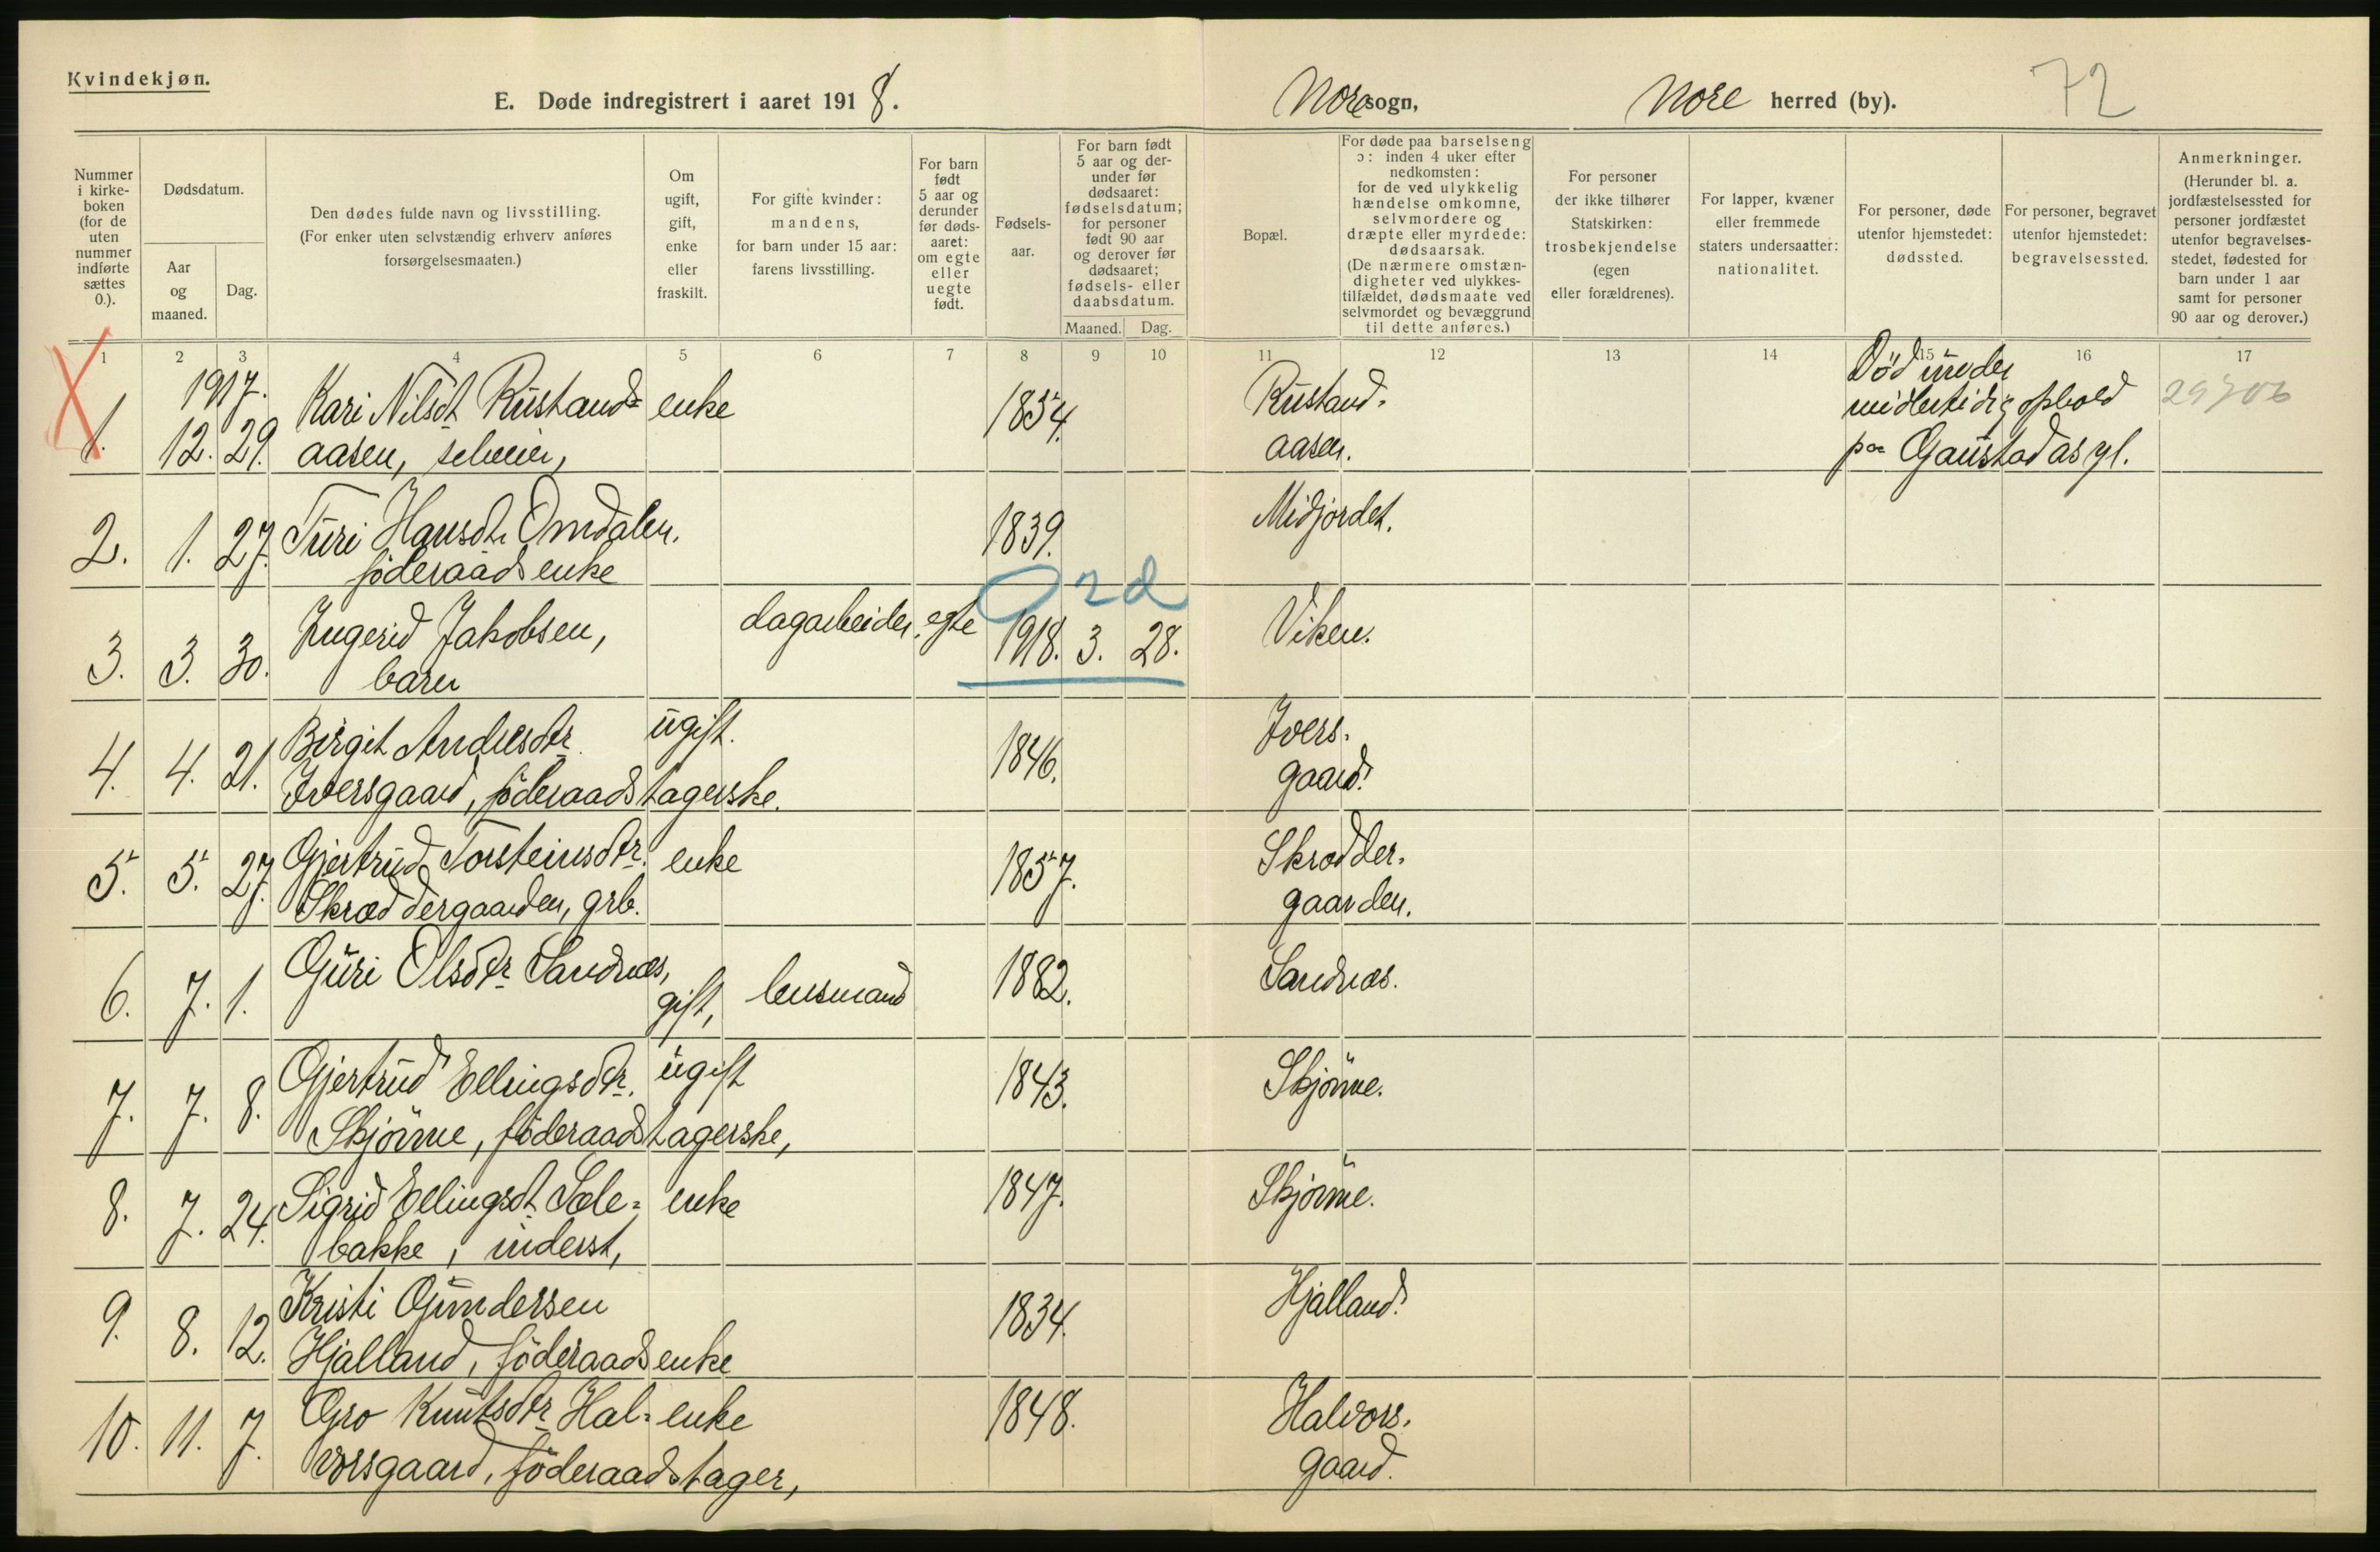 Kvindekjøn.
E. Døde indregistrert i aaret 1918. Nore sogn, Nore herred (by). 72
Nummer i kirke-boken (for de uten nummer indførte sættes 0.).
Dødsdatum.
Aar og maaned.
Dag.
Den dødes fulde navn og livsstilling.
(For enker uten selvstændig erhverv anføres
forsørgelsesmaaten.)
Om ugift, gift, enke eller fraskilt.
For gifte kvinder:
mandens,
for barn under 15 aar:
farens livsstilling.
For barn født 5 aar og derunder før døds-aaret: om egte eller uegte født.
Fødsels-aar.
For barn født 5 aar og der-under før dødsaaret: fødselsdatum; for personer født 90 aar og derover før dødsaaret; fødsels- eller daabsdatum.
Maaned. Dag.
Bopæl.
For døde paa barselseng
ɔ: inden 4 uker efter
nedkomsten:
for de ved ulykkelig
hændelse omkomne,
selvmordere og
dræpte eller myrdede:
dødsaarsak.
(De nærmere omstæn-
digheter ved ulykkes-
tilfældet, dødsmaate ved
selvmordet og bevæggrund
til dette anføres.)
For personer
der ikke tilhører
Statskirken:
trosbekjendelse
(egen
eller forældrenes).
For lapper, kvæner
eller fremmede
staters undersaatter:
nationalitet.
For personer, døde
utenfor hjemstedet:
dødssted.
For personer, begravet
utenfor hjemstedet:
begravelsessted.
Anmerkninger.
(Herunder bl. a.
jordfæstelsessted for
personer jordfæstet
utenfor begravelses-
stedet, fødested for
barn under 1 aar
samt for personer
90 aar og derover.)
1 2 3 4 5 6 7 8 9 10 11 12 13 14 15 16 17
1917. Død under
Kari Nilsdt Rustand= enke 1854. Rustand- midlertidig ophold 29706
1. 12. 29. aasen, selveier, aasen. paa Gaustad asyl.
2. 1. 27. Turi Hansdt. Omdalen. 1839. Midjordet.
föderaadsenke
Ord
3. 3. 30. Ingerid Jakobsen, dagarbeider, egte 1918. 3. 28. Viken.
barn
4. 4. 21. Birgit Andersdtr. ugift. 1846. Ivers-
Iversgaard, föderaadstagerske. gaard.
5. 5. 27. Gjertrud Torsteinsdtr. enke 1857. Skrædder-
Skræddergaarden, grb. gaarden.
6. 7. 1. Guri Olsdtr Sandnæs, gift, lensmand 1882. Sandnæs.
7. 7. 8. Gjertrud Ellingsdtr. ugift 1843. Skjönne.
Skjönne, föderaadstagerske,
8. 7. 24. Sigrid Ellingsdt Sele= enke 1847. Skjönne.
bakke, inderst,
9. 8. 12. Kristi Gundersen 1834. Hjalland.
Hjalland, föderaadsenke
10. 11. 7. Gro Knutsdtr Hal= enke 1848. Halvors-
vorsgaard, föderaadstager, gaard.